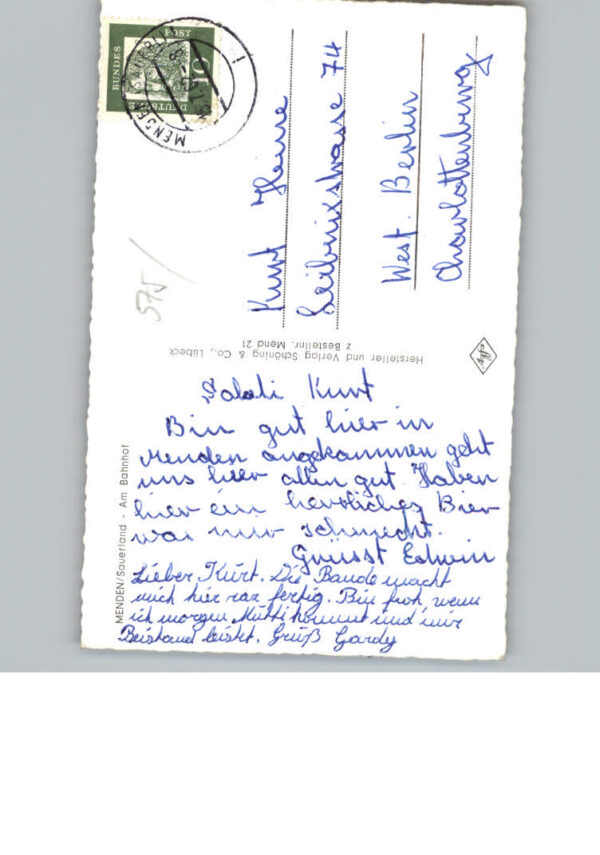 DEUTSCHE
BUNDES
POST
10
MENDEN
1
575
Kurt Henre
Leibnixstrasse 74
West. Berlin
Charlottenburg
Hersteller und Verlag Schöning & Co., Lübeck
z Bestellnr. Mend 21
MENDEN/Sauerland - Am Bahnhof
Kurt
Bin gut hier in
Menden angekammen geht
uns hier allen gut. Haben
hier ein herrliches Bier
was nur schmeckt.
Grüsst Edwin
Lieber Kurt. Die Bande macht
mich hier rax fertig. Bin froh, wenn
ich morgen Mutti kommt und mir
Beistand leistet. Gruß Gardy